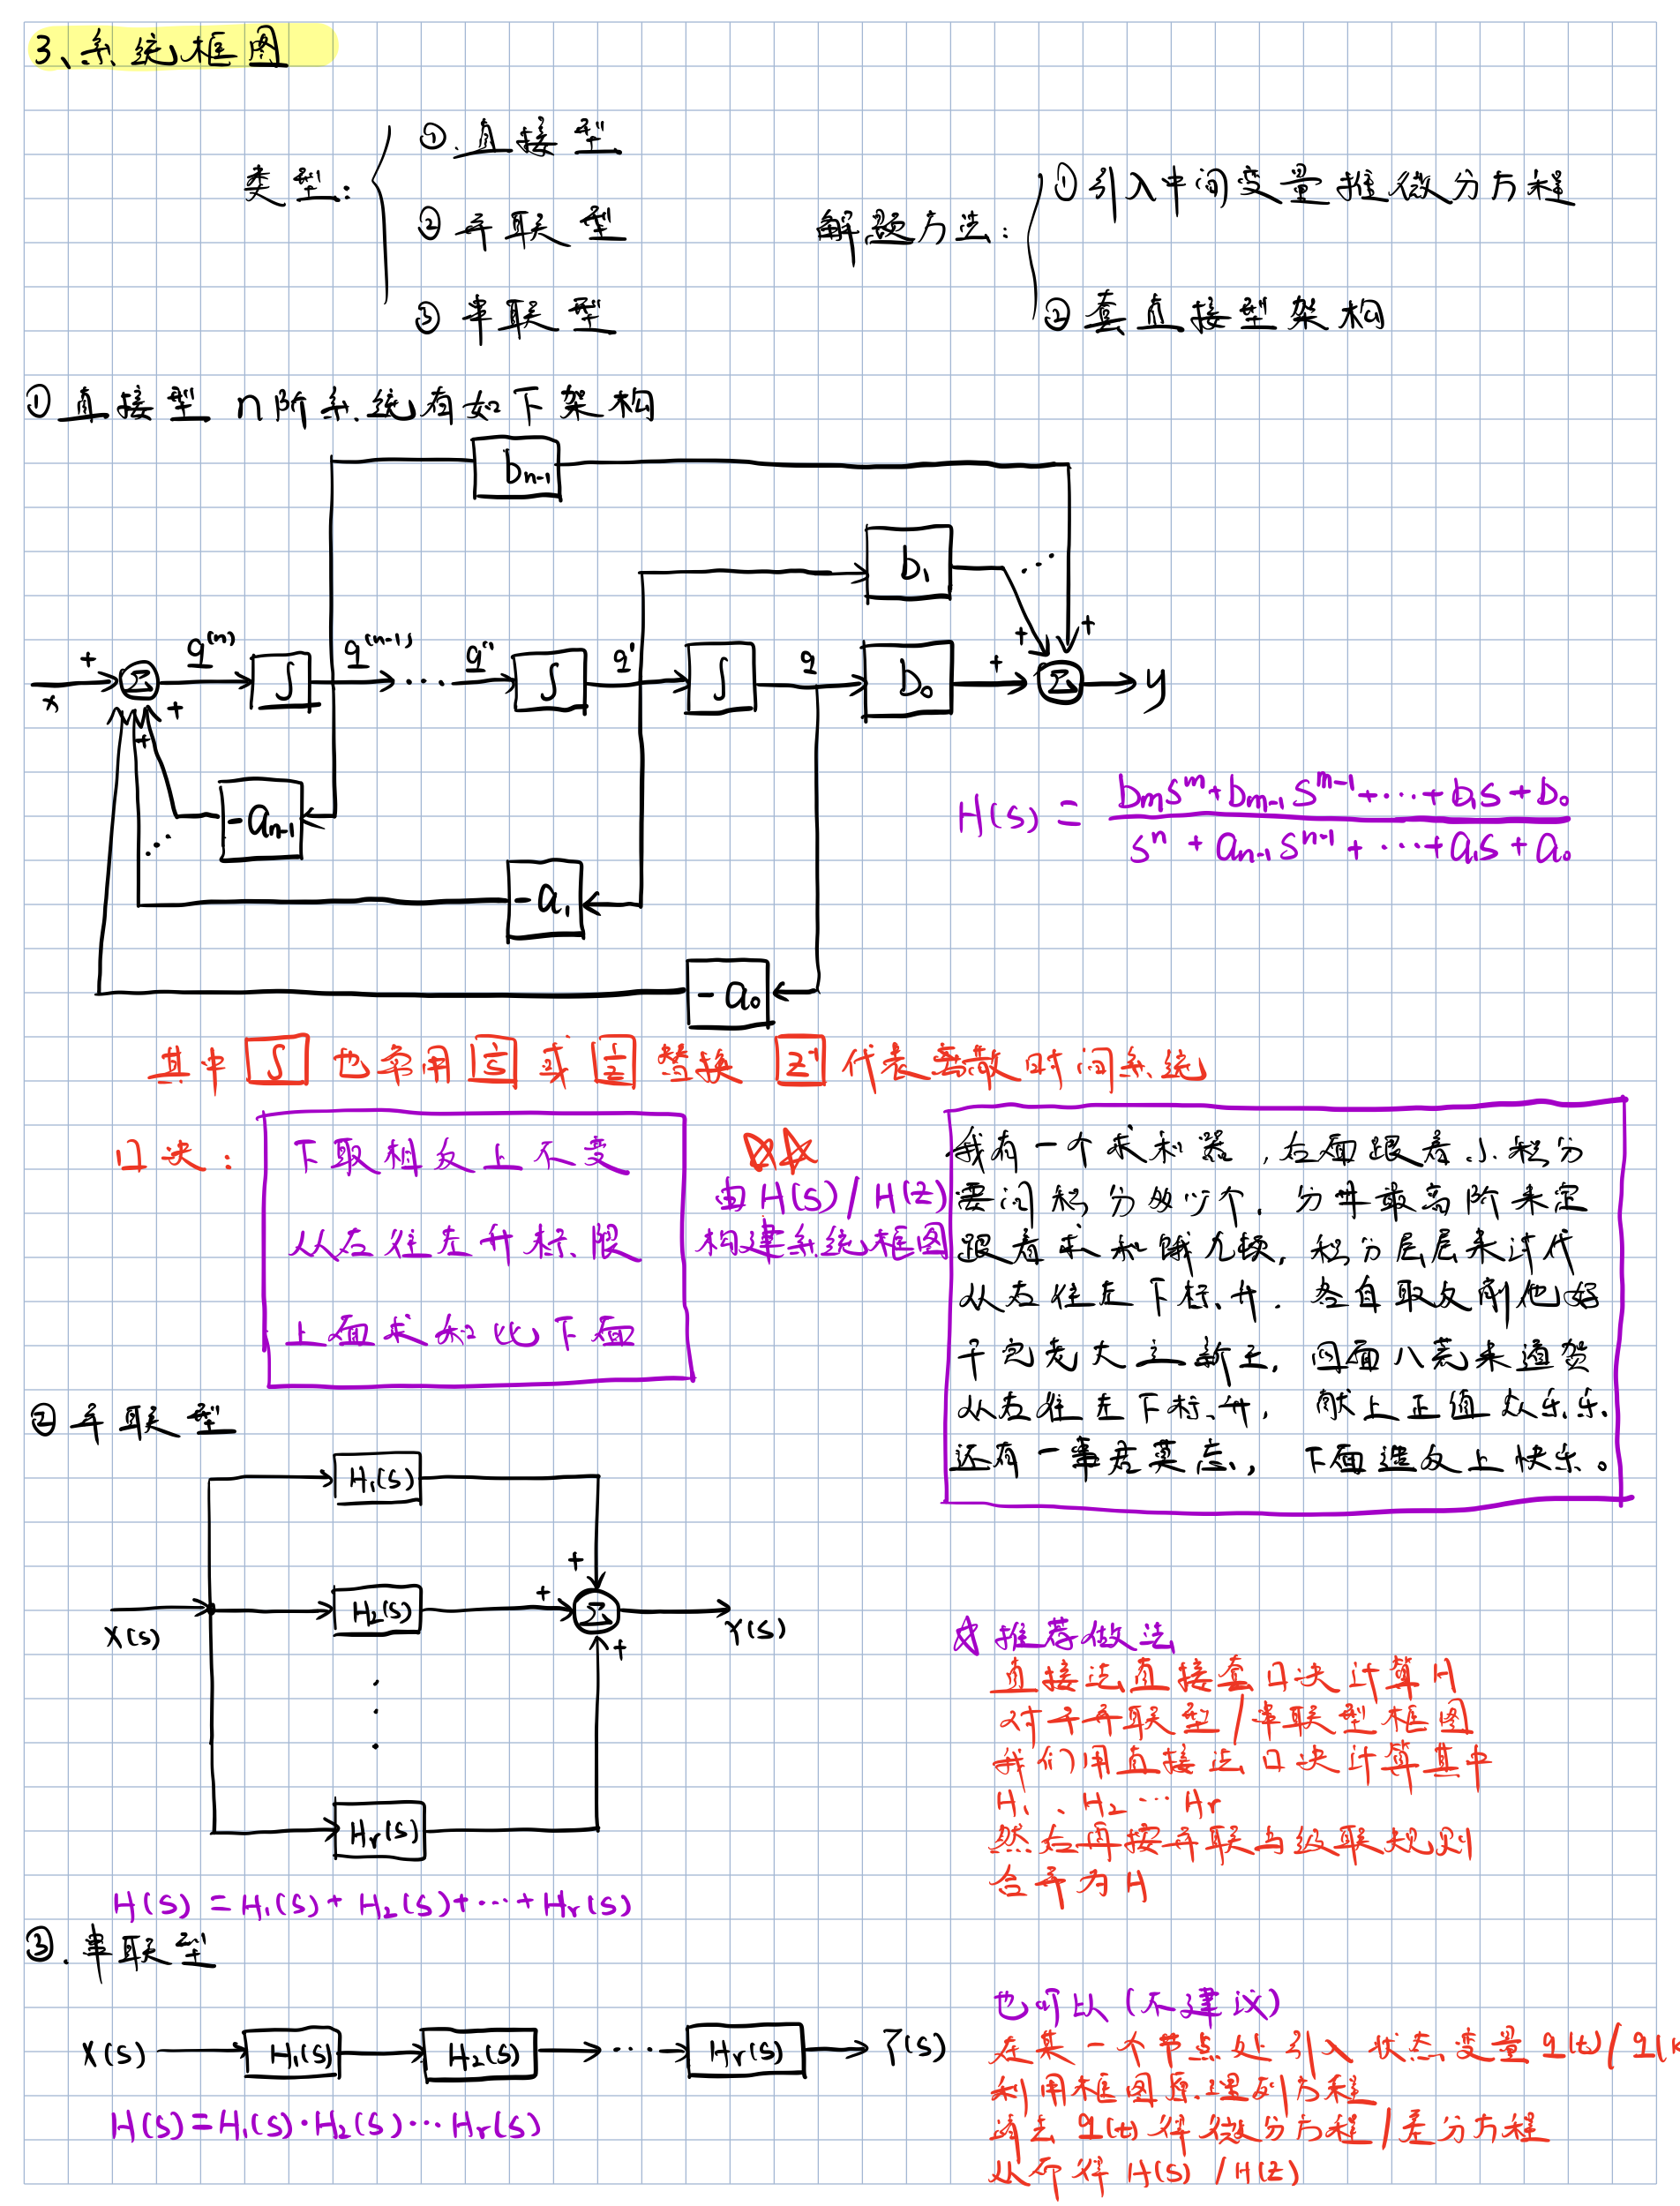 3、系统框图
类型：
① 直接型
② 并联型
③ 串联型
解题方法：
① 引入中间变量推微分方程
② 套直接型架构
① 直接型 n阶系统有如下架构
bn-1
b1
+ q(n) ∫ q(n-1) … q'' ∫ q' ∫ q b0 + Σ y
x Σ +
-an-1
-a1
-a0
H(s) = (bm s^m + bm-1 s^m-1 + … + b1s + b0) / (s^n + an-1 s^n-1 + … + a1s + a0)
其中 ∫ 也常用 1/s 或 1/z 替换 z^-1 代表离散时间系统
口决：
下取相反上不变
从右往左升标限
上面求和比下面
☆☆
由H(s)/H(z)
构建系统框图
我有一个求和器，右面跟着小积分
要问积分多少个，分母最高阶来定
跟着求和饿几顿，积分层层来
从右往左下标升，各自取反
老大立新王，四面八荒来道贺
从右往左下标升，献上正值众乐乐
还有一事君莫忘，下面造反上快乐。
② 并联型
X(s)
H1(s)
H2(s)
⋮
Hr(s)
+ + Σ +
Y(s)
H(s) = H1(s) + H2(s) + … + Hr(s)
③. 串联型
X(s) H1(s) H2(s) … Hr(s) Y(s)
H(s) = H1(s)·H2(s)…Hr(s)
☆ 推荐做法
直接法直接套口决计算H
对于并联型/串联型框图
我们用直接法口决计算其中
H1、H2…Hr
然右再按并联与级联规则
合并为H
也可以（不建议）
在某一个节点处引入状态变量q(t)/q(k
利用框图原理列方程
消去q(t)得微分方程/差分方程
从而得H(s)/H(z)